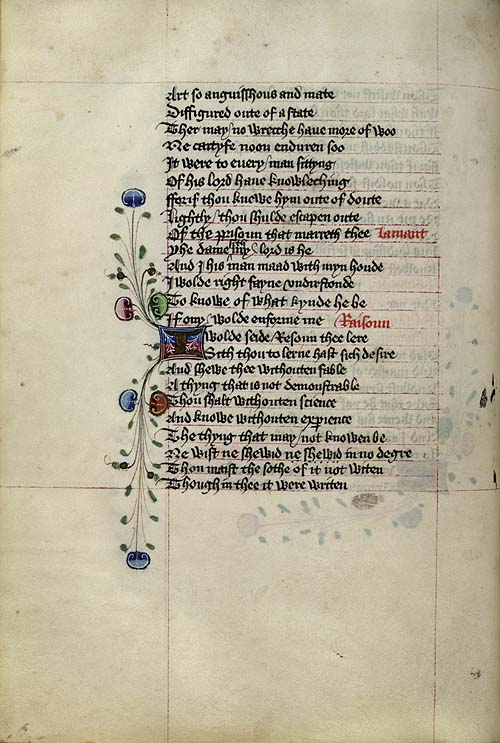 Art so anguisshous and mate
Diffigured oute of astate
Ther may / no wrecche haue more of woo
Ne caityfe noon enduren soo
It were to euery / man sittyng
Of his lord haue knowleching
fforif thou knewe hym oute of doute
lightly / thou shulde escapen oute
Of the prisoun that marreth thee Lamant
Yhe dame my lord is he
And I his man maad with myn honde
I wolde right fayne vndirstonde
To knowe of what kynde he be
If ony / wolde enforme me Raisoun
I wolde seide / Resoun thee lere
Sith thou to lerne hast sich desire
And shewe thee withouten fable
A thyng that is not demonstrable
Thou shalt withouten science
And knowe withouten experience
The thyng that may / not knowen be
Ne wist ne shewid ne shewid in no degre
Thou maist the sothe of it not witen
Though in thee it were writen